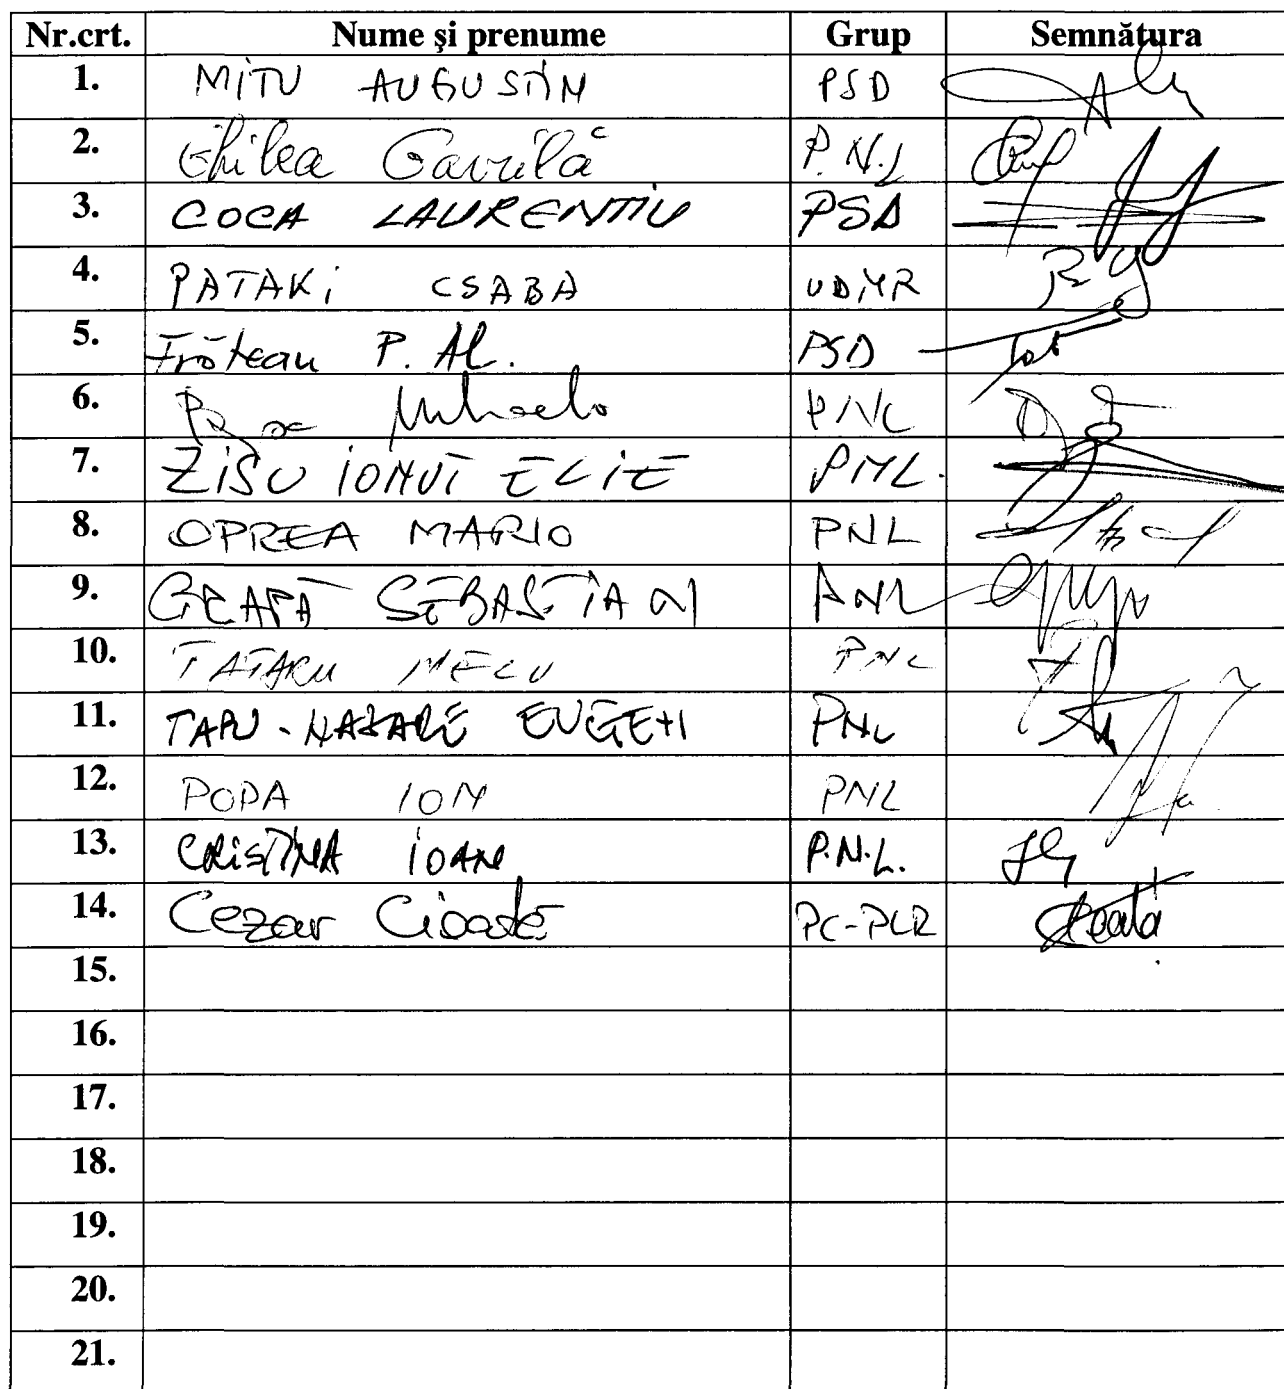 Nr.crt. Nume şi prenume Grup Semnătura
1. MITU AUGUSTIN PSD
2. Ghilea Gavrilă P.N.L
3. COCA LAURENTIU PSD
4. PATAKI CSABA UDMR
5. P. Al. PSD
6. Mihaela PNL
7. ZISU IONUT ELIE PNL.
8. OPREA MARIO PNL
9. GEAPĂ SEBASTIAN PNL
10. TATARU NELU PNL
11. TAPU-NAZARE EUGEN PNL
12. POPA ION PNL
13. CRISTINA IOAN P.N.L.
14. Cezar Cioată PC-PLR
15.
16.
17.
18.
19.
20.
21.